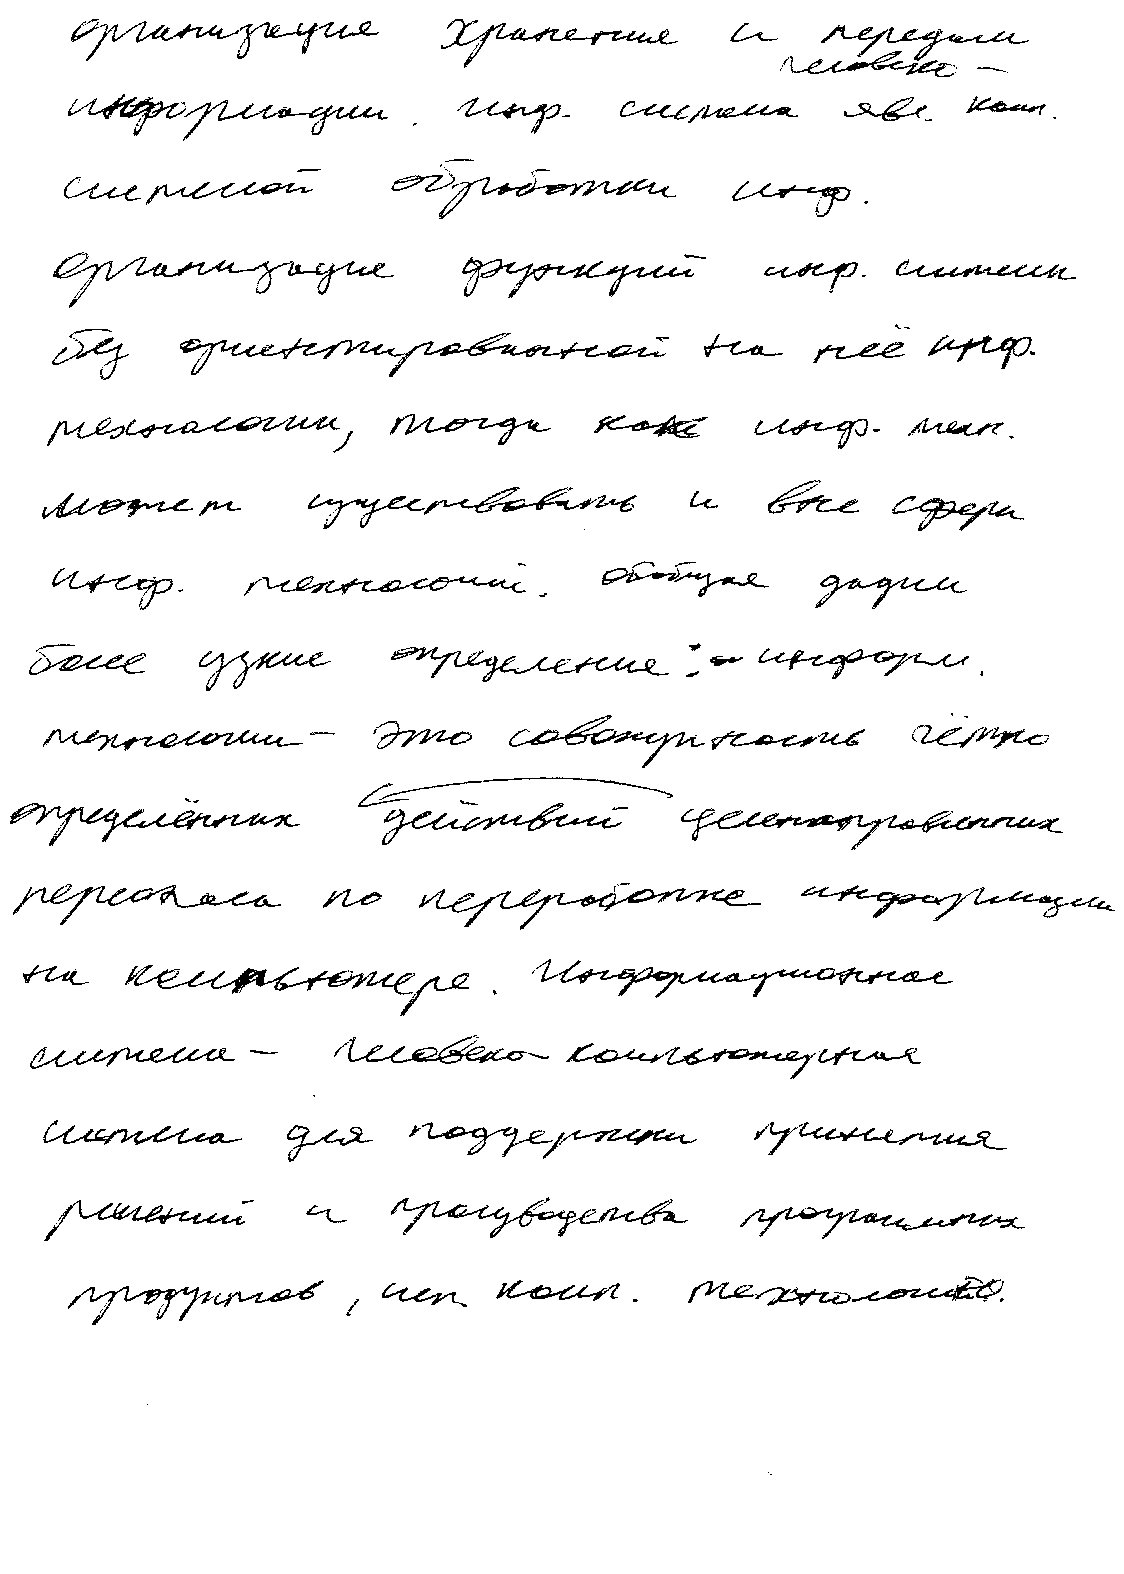 организация хранения и передачи
человеко-
информации. инф. система явл. комп.
системой обработки инф.
Организация функций инф. системы
без ориентированной на неё инф.
технологии, тогда как инф. техн.
может существовать и вне сферы
инф. технологий. обобщая дадим
более узкие определение: информ.
технологии - это совокупность чётко
определённых действий целенаправленных
персонала по переработке информации
на компьютере. Информационная
система - человеко-компьютерная
система для поддержки принятия
решений и производства программных
продуктов, исп. комп. технологию.